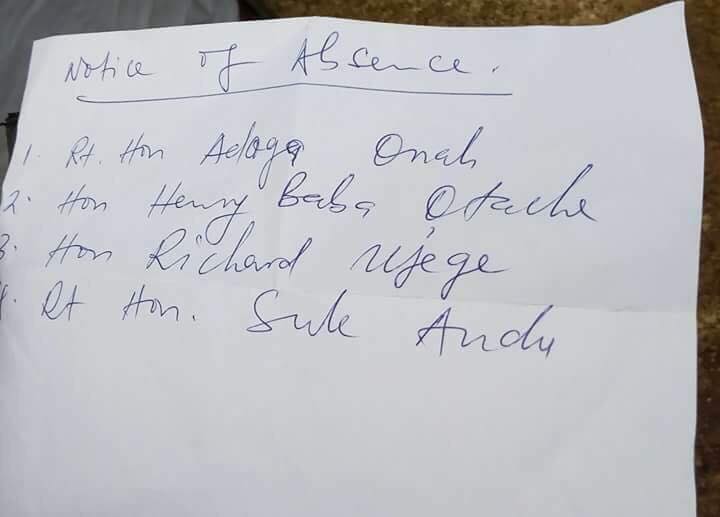 Notice of Absence.
1. Rt. Hon Adoga Onah
2. Hon Henry Baba Otache
3. Hon Richard Ujege
4. Rt Hon. Sule Audu